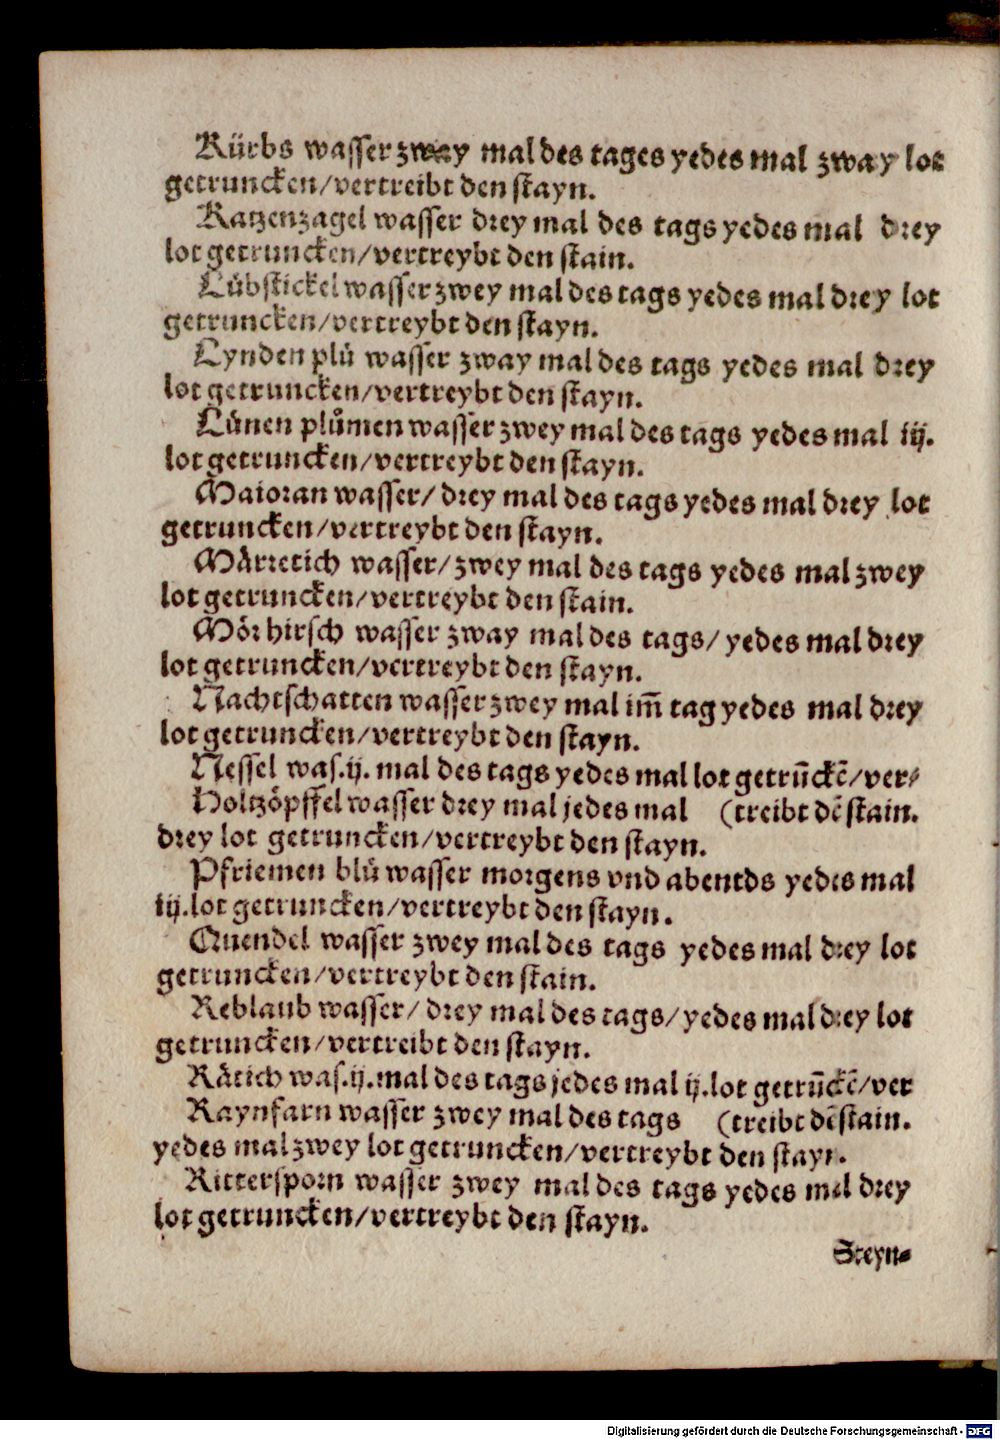 Kürbs wasser zway mal des tages yedes mal zway lot
getruncken/vertreibt den stayn.
Katzenzagel wasser drey mal des tags yedes mal drey
lot getruncken/vertreybt den stain.
Lübstickel wasser zwey mal des tags yedes mal drey lot
getruncken/vertreybt den stayn.
Lynden plů wasser zway mal des tags yedes mal drey
lot getruncken/vertreybt den stayn.
Lůnen plůmen wasser zwey mal des tags yedes mal iij.
lot getruncken/vertreybt den stayn.
Maioran wasser/ drey mal des tags yedes mal drey lot
getruncken/vertreybt den stayn.
Mårretich wasser/ zwey mal des tags yedes mal zwey
lot getruncken/vertreybt den stain.
Mör hirsch wasser zway mal des tags/ yedes mal drey
lot getruncken/vertreybt den stayn.
Nachtschatten wasser zwey mal im̃ tag yedes mal drey
lot getruncken/vertreybt den stayn.
Nessel was.ij. mal des tags yedes mal lot getrũckẽ/ver-
Holtzöpffel wasser drey mal jedes mal (treibt dẽ stain.
drey lot getruncken/vertreybt den stayn.
Pfriemen blů wasser morgens vnd abentds yedes mal
iij.lot getruncken/vertreybt den stayn.
Quendel wasser zwey mal des tags yedes mal drey lot
getruncken/vertreybt den stain.
Reblaub wasser/ drey mal des tags/ yedes mal drey lot
getruncken/vertreibt den stayn.
Råtich was.ij.mal des tags jedes mal ij.lot getrũckẽ/ver
Raynfarn wasser zwey mal des tags (treibt dẽ stain.
yedes mal zwey lot getruncken/vertreybt den stayn.
Rittersporn wasser zwey mal des tags yedes mal drey
lot getruncken/vertreybt den stayn.
Steyn-
Digitalisierung gefördert durch die Deutsche Forschungsgemeinschaft - DFG